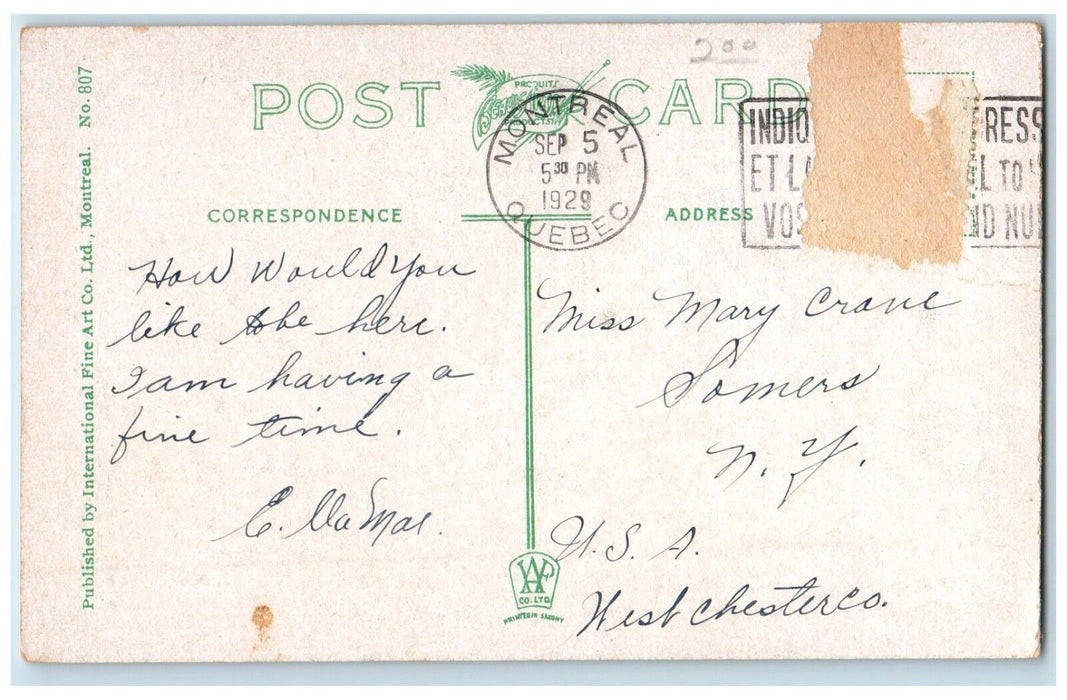 2.00
POST CARD
PRODUITS
PRODUCTS
MONTREAL
SEP 5
5 30 PM
1929
QUEBEC
INDIQ RESS
ET LA L TO
VOS ND NU
CORRESPONDENCE
ADDRESS
How Would You
like to be here.
I am having a
fine time.
E. Va Mae.
Miss Mary Crane
Somers
N. Y.
U. S. A.
West chester co.
Published by International Fine Art Co. Ltd., Montreal. No. 807
CO. LTD.
PRINTED IN SAXONY